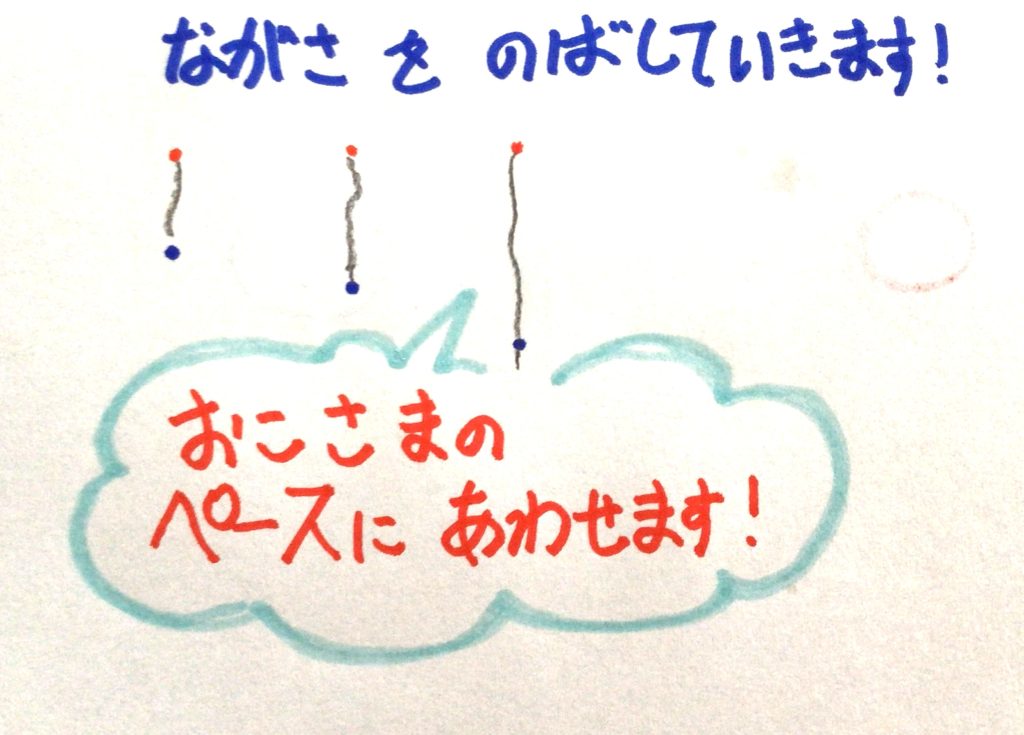 ながさを のばしていきます!
おこさまの
ペースに あわせます!